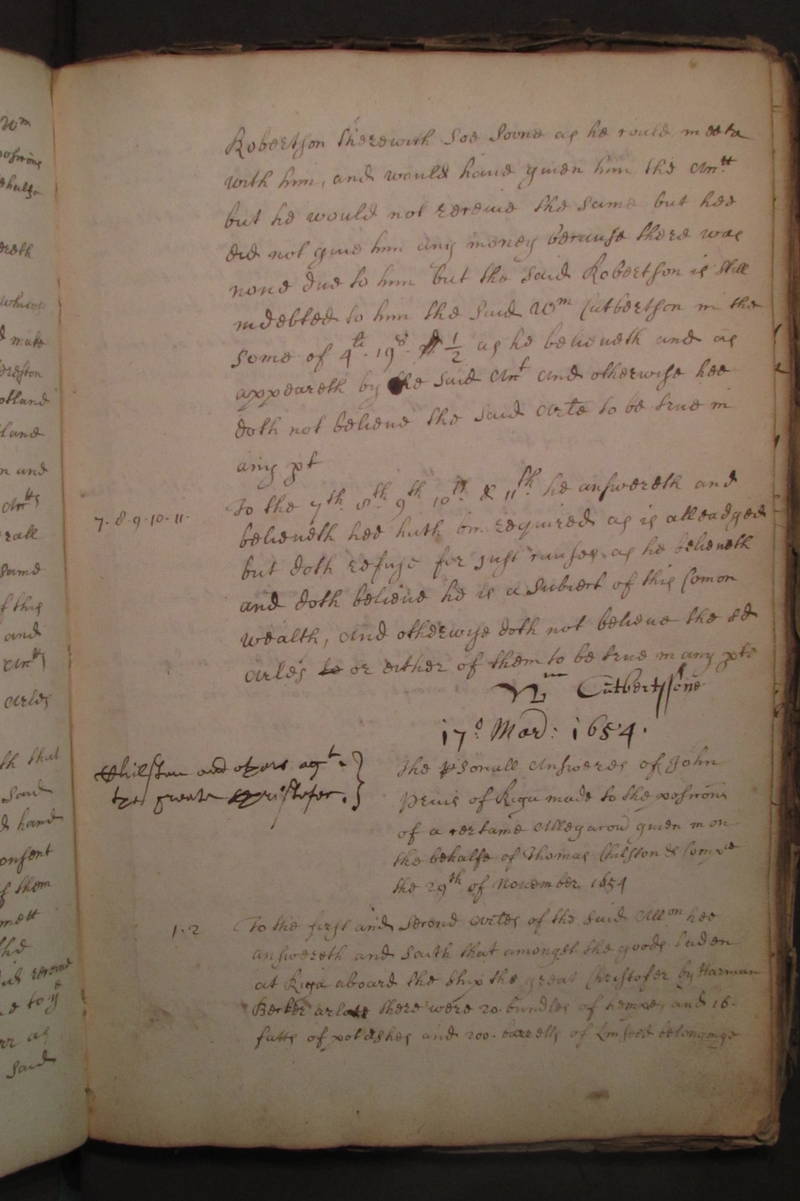 Robertson therewith soe soone as he could meete
with him, and would haue giuen him the Acctt
but he would not receiue the same but hee
did not giue him any money because there was
none due to him but the said Robertson is still
indebted to him the said Wm Cutbertson in the
some of 4li 19s ½ as he beleiueth and as
appeareth by the said Acct And otherwise hee
doth not beleiue the said Arte to be true in
any pt
7. 8. 9. 10. 11.
To the 7th 8th 9th 10th & 11th he answereth and
beleiueth hee hath bin required as is alleadged
but doth refuse for just causes as he beleiueth
and doth beleiue he is a Subiect of this Comon
wealth, And otherwise doth not beleiue the sd
Arles or either of them to be true in any pte
Wm Cutbertsone
17o Mar: 1654.
Chilston and others agt
the greate Christofer.
The psonall Answeres of John
of Riga made to the possions
of a certaine Allegacon giuen in on
the behalfe of Thomas Chilston & Compa
the 29th of November 1654
1. 2
To the first and second Artles of the said Allon hee
answereth and saith that amongst the goods laden
at Riga aboard the ship the great Christofer by Harman
Becker arlate there were 20. bundles of hempe, and 16.
fatts of potashes and 200. barrells of Linseed belonginge
Wm
possions
ereth
whereof
make
and
Acctt
same
of this
and
Acctt
Arles
th that
said
hand
onsent
of them
mett
the
receiue
e to ye
as
said